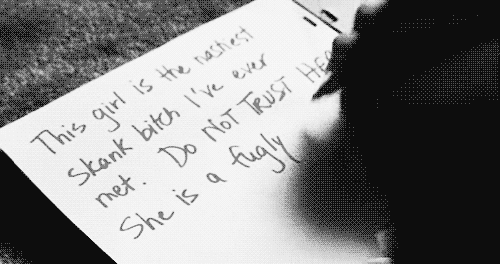 This girl is the nastiest
skank bitch I've ever
met. Do NOT TRUST HER
She is a fugly